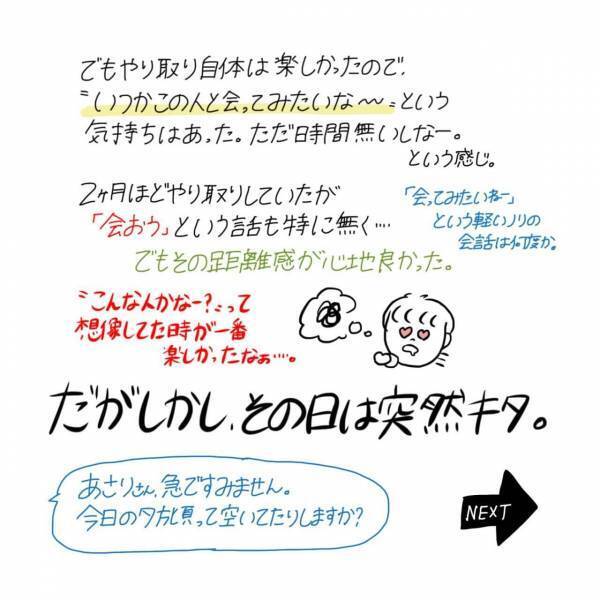 でもやり取り自体は楽しかったので、
〝いつかこの人と会ってみたいな〜〟という
気持ちはあった。ただ時間無いしなー。
という感じ。
2ヶ月ほどやり取りしていたが
「会おう」という話も特に無く…
「会ってみたいねー」
という軽いノリの
会話は何度か。
でもその距離感が心地良かった。
〝こんな人かなー？〟って
想像してた時が一番
楽しかったなぁ…。
だがしかし、その日は突然キタ。
あさりさん、急ですみません。
今日の夕方頃って空いてたりしますか？
NEXT